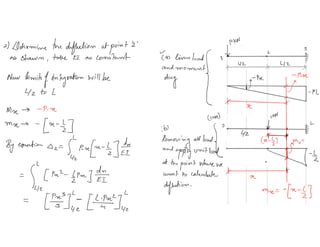 2) Determine the deflection at point 2'
as shown, take EI as constant
New limit of integration will be
L/2 to L
Mx → -Px
mx → -[x-L/2]
By equation Δ2 = ∫ L/2 L Px[x-L/2] dx/EI
= ∫ L/2 L [Px² - L/2 Px] dx/EI
= [Px³/3] L L/2 - [L·Px²/4] L L/2
(a) 
and moment
diag.
1
2
3
L/2
L/2
-Px
-Px
-PL
x
(b)
Removing all load
and apply unit load
at the point where we
want to calculate
deflection.
1
2
L/2
(x-L/2)
-L/2
x
mx = -[x-L/2]